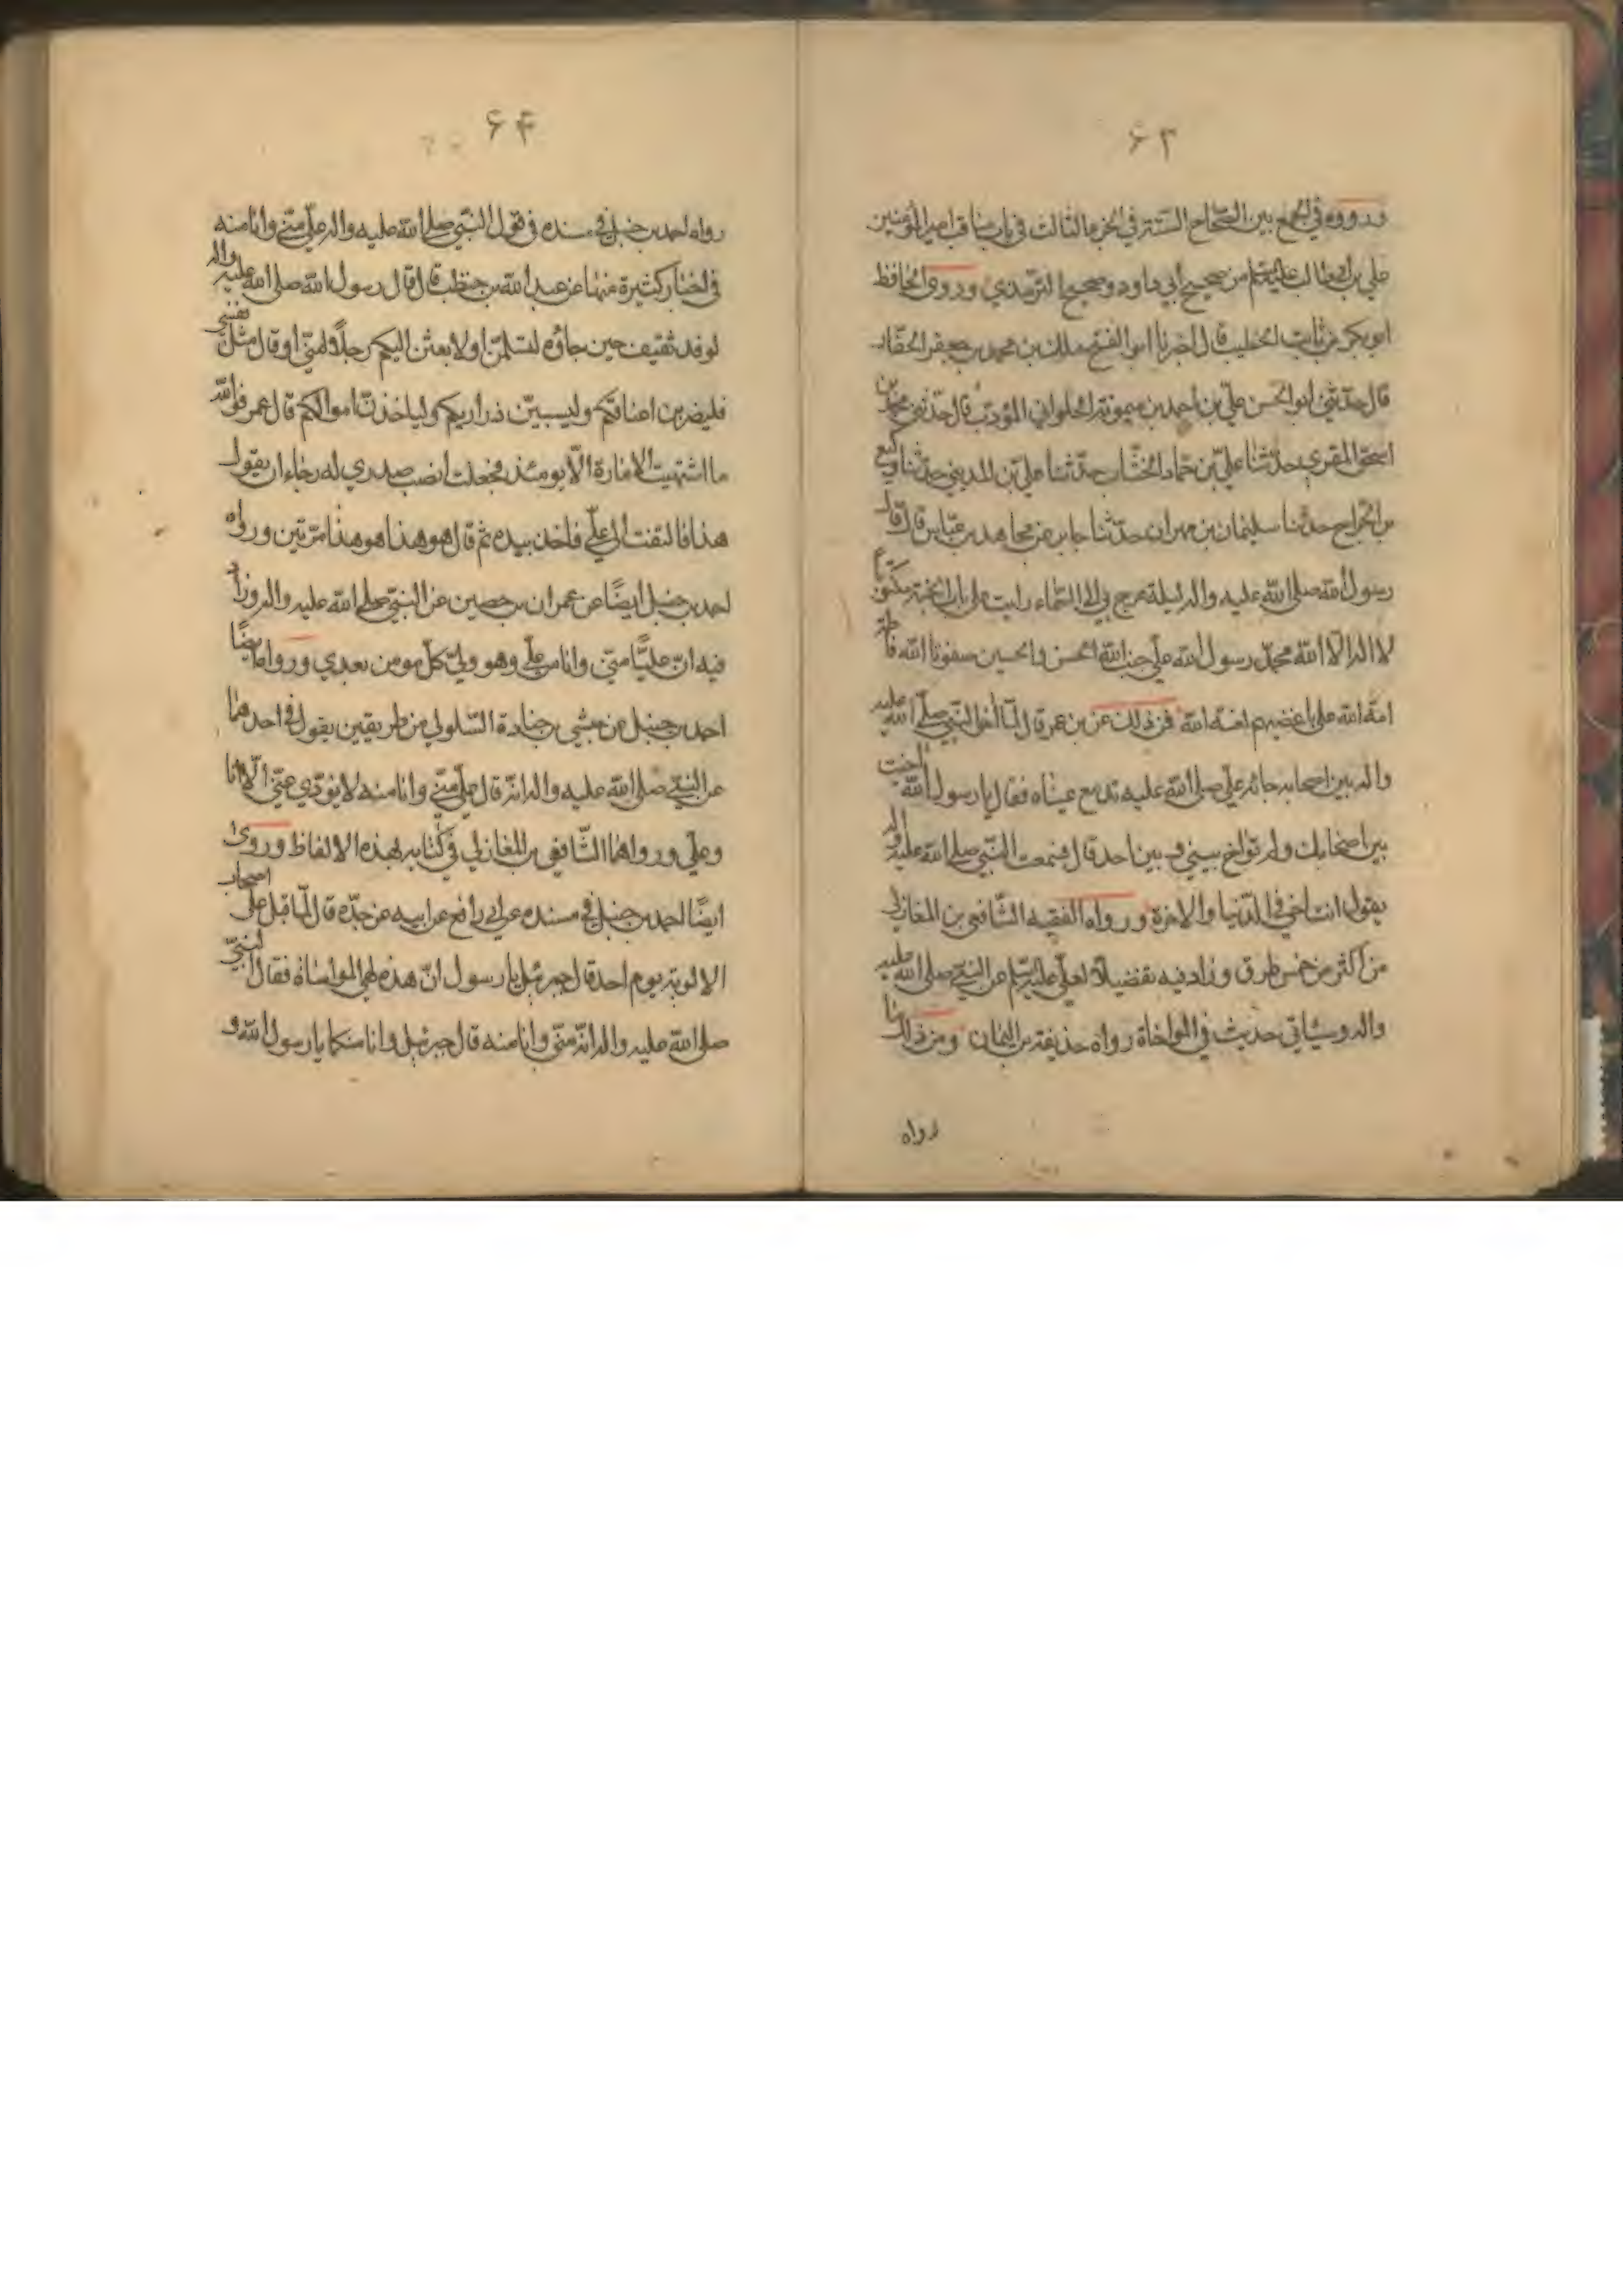 ۶۳
ورووه في الجمع بين الصّحاح الستّة في الجزء الثالث في باب مناقب امير المؤمنين
علي بن أبي طالب عليه السّلم من صحيح أبي داود وصحيح الترمذي وروى الحافظ
ابو بكر بن ثابت الخطيب قال اخبرنا ابو الفتح هلال بن محمد بن جعفر الحفّار
قال حدّثني ابو الحسن عليّ بن احمد بن ميمونة الحلواني المؤدّب قال حدّثني محمد بن
اسحق المقري حدّثنا عليّ بن حماد الخشّاب حدّثنا علي بن المديني حدّثنا وكيع
بن الجراح حدّثنا سليمان بن مهران حدّثنا جابر عن مجاهد بن عبّاس قال قال
رسول الله صلى الله عليه واله ليلة عرج بي الى السّماء رايت على باب الجنة مكتوباً
لا اله الا الله محمّد رسول الله علي حبّ الله الحسن والحسين صفوة الله فاطمة
امة الله على باغضيهم لعنة الله فمن ذلك عن بن عمر قال لمّا آخا النّبي صلّى الله عليه
واله بين اصحابه جاء علي صلى الله عليه تدمع عيناه فقال يا رسول الله آخيت
بين اصحابك ولم تواخ بيني وبين احد قال فسمعت النّبي صلى الله عليه واله
يقول انت اخي في الدّنيا والاخرة ورواه الفقيه الشّافعي بن المغازلي
من اكثر من خمس طرق وزاد فيه تفضيلاً لعلي عليه السّلم عن النبيّ صلى الله عليه
واله وسيأتي حديث في المواخاة رواه حذيفة بن اليمان ومن ذلك ما
رواه
۶۴
رواه احمد بن حنبل في مسنده في قول النّبي صلى الله عليه واله علي منّي وانا منه
في اخبار كثيرة منها عن عبد الله بن حنطب قال قال رسول الله صلى الله عليه واله
لوفد ثقيف حين جاؤه لتسلمنّ او لابعثن اليكم رجلاً منّي او قال مثل نفسي
فليضربن اعناقكم وليسبينّ ذراريكم ولياخذنّ اموالكم قال عمر فوالله
ما اشتهيت الامارة الّا يومئذ فجعلت انصب صدري له رجاء ان يقول
هذا فالتفت الى علّي فاخذ بيده ثم قال هو هذا هو هذا مرّتين ورواه
احمد بن حنبل ايضًا عن عمران بن حصين عن النبيّ صلى الله عليه واله وزاد
فيه انّ عليًّا منّي وانا من علّي وهو وليّ كلّ مومن بعدي ورواه ايضًا
احمد بن حنبل عن حبشي بن جنادة السّلولي من طريقين يقول في احدهما
عن النبيّ صلى الله عليه واله انّه قال علّي منّي وانا منه لا يؤدّي عنّي الّا انا
وعلّي ورواهما الشّافعي بن المغازلي في كتابه بهذه الالفاظ وروى
ايضًا احمد بن حنبل في مسنده عن ابي رافع عن ابيه عن جدّه قال لمّا قتل علّي اصحاب
الالوية يوم احد قال جبرئيل يا رسول انّ هذه لهي المواساة فقال النبيّ
صلى الله عليه واله انّه منّي وانا منه قال جبرئيل وانا منكما يا رسول الله و